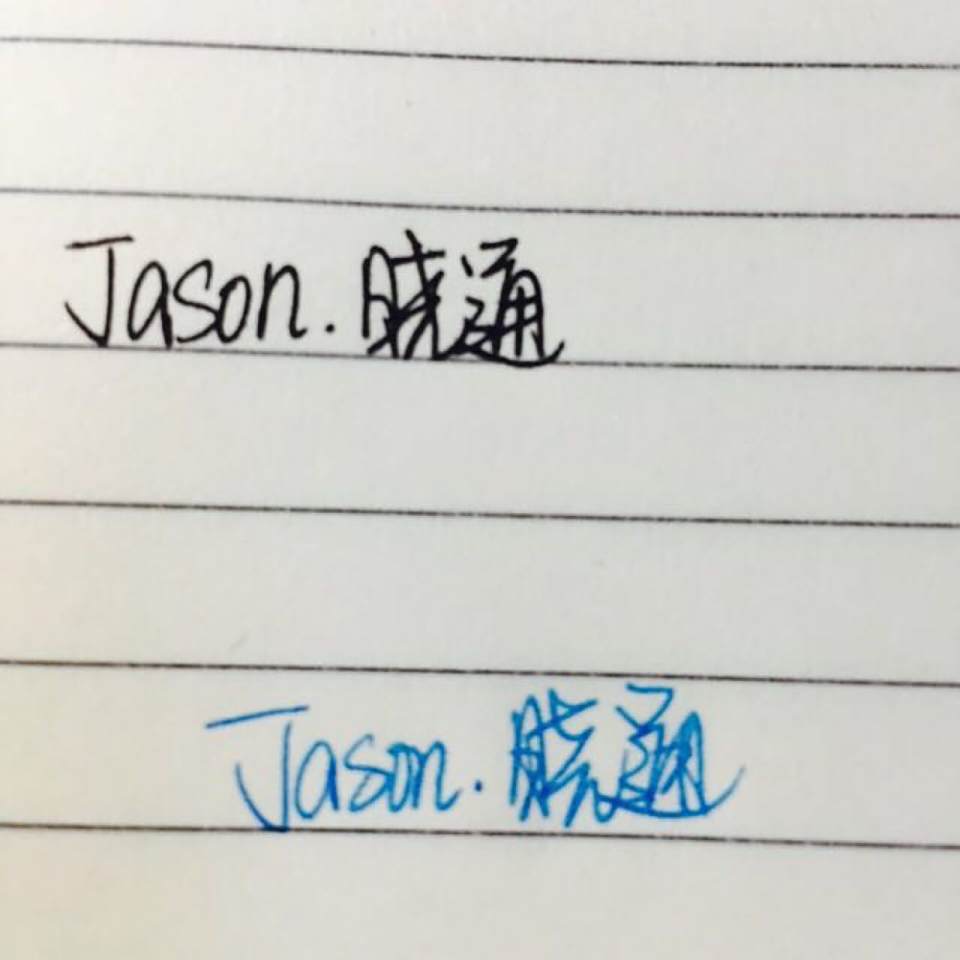 Jason.晓通
Jason.晓通